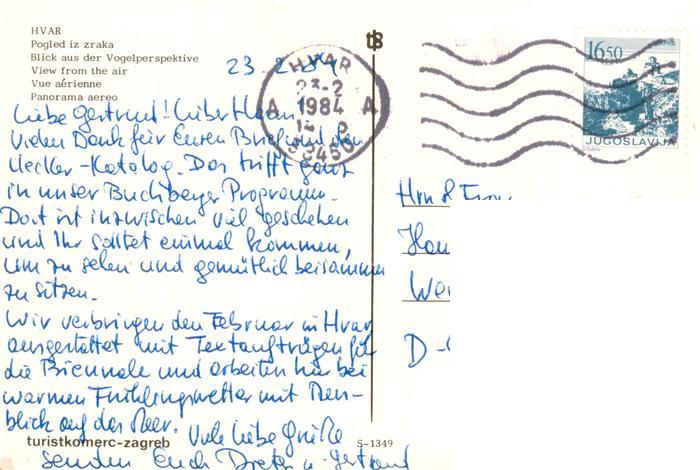 HVAR
Pogled iz zraka
Blick aus der Vogelperspektive
View from the air
Vue aérienne
Panorama aereo
23.2.84
Liebe Gertrud! Lieber
Vielen Dank für Euren Brief und den
Uecker-Katalog. Das trifft ganz
in unser Buchberger Programm.
Dort ist inzwischen viel geschehen
und Ihr solltet einmal kommen,
um zu sehen und gemütlich beisammen
zu sitzen.
Wir verbringen den Februar in Hvar
ausgestattet mit Textaufträgen für
die Biennale und arbeiten hier bei
warmen Frühlingswetter mit
blick auf das Meer. Viele liebe Grüße
senden Euch u.
turistkomerc-zagreb
S-1349
HVAR
23-2
1984
A A
58450
16.50
JUGOSLAVIJA
Hrn & Frau
D-